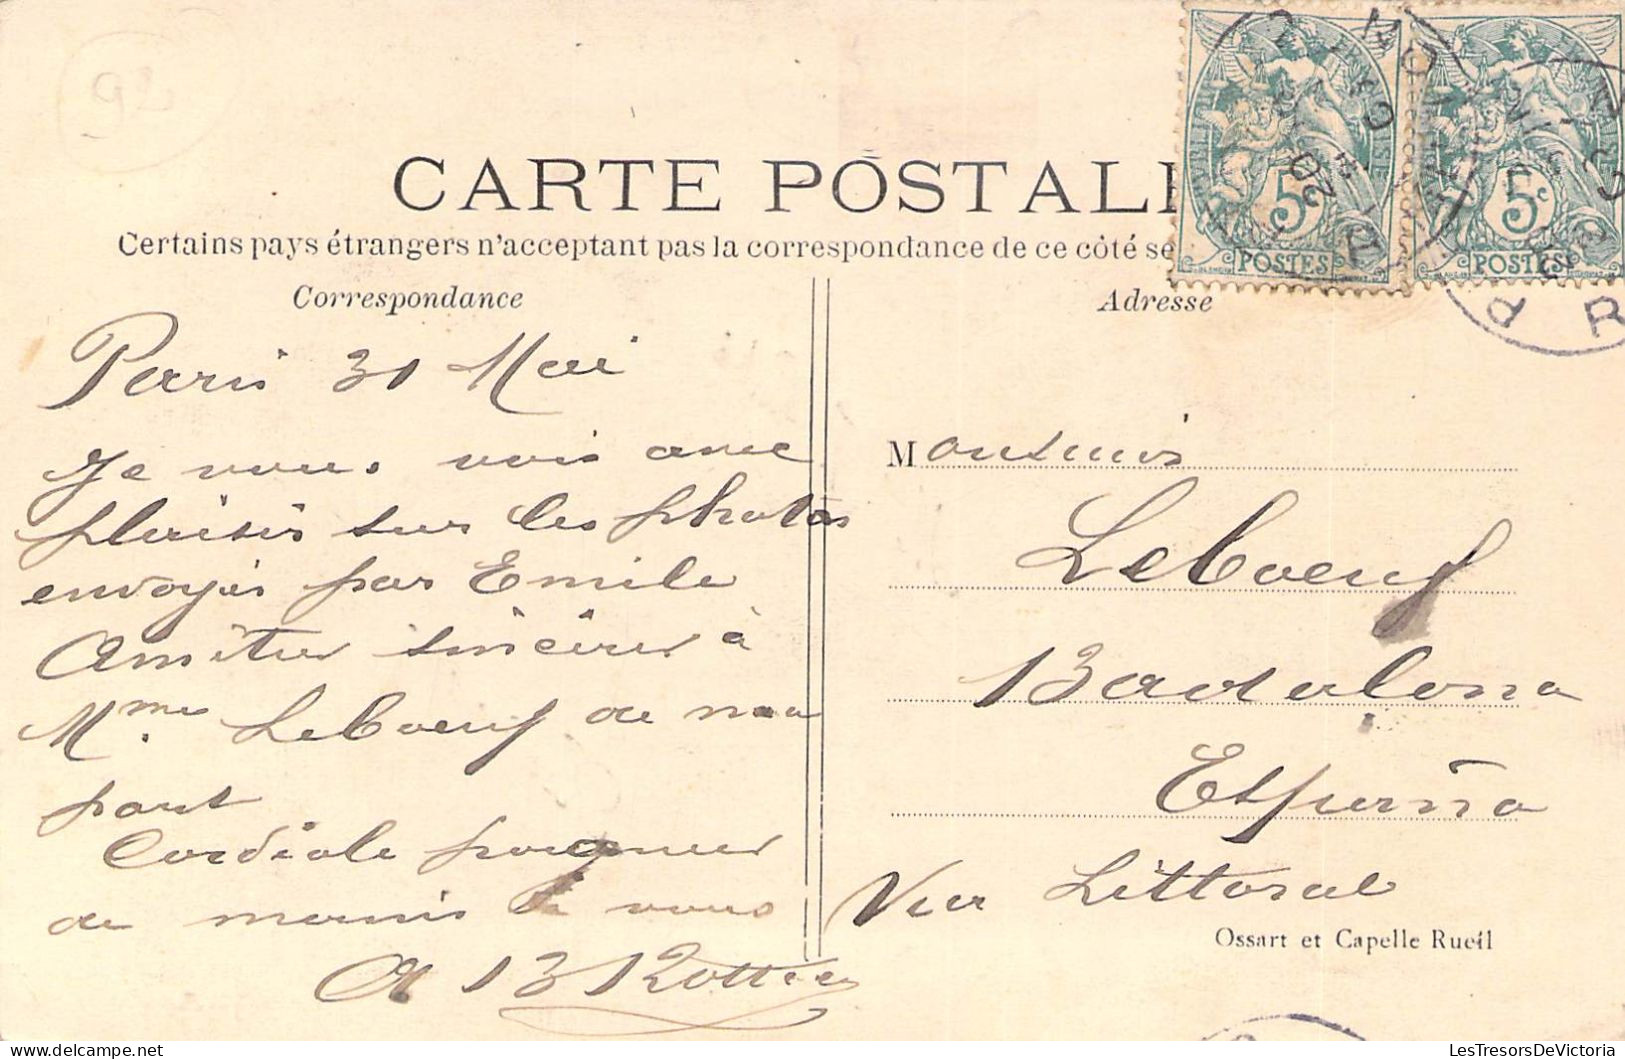 92
CARTE POSTALE
Certains pays étrangers n'acceptant pas la correspondance de ce côté se
Correspondance
Adresse
5c
POSTES
5c
POSTES
Paris 31 Mai
Je vous vois avec
plaisir sur les photos
envoyés par Emile
Amitiés sincères à
Mme Leboeuf de ma
part
Cordiale poignée
de mains à vous
Monsieur
Leboeuf
Badalona
España
Via Littoral
Ossart et Capelle Rueil
LesTresorsDeVictoria
www.delcampe.net